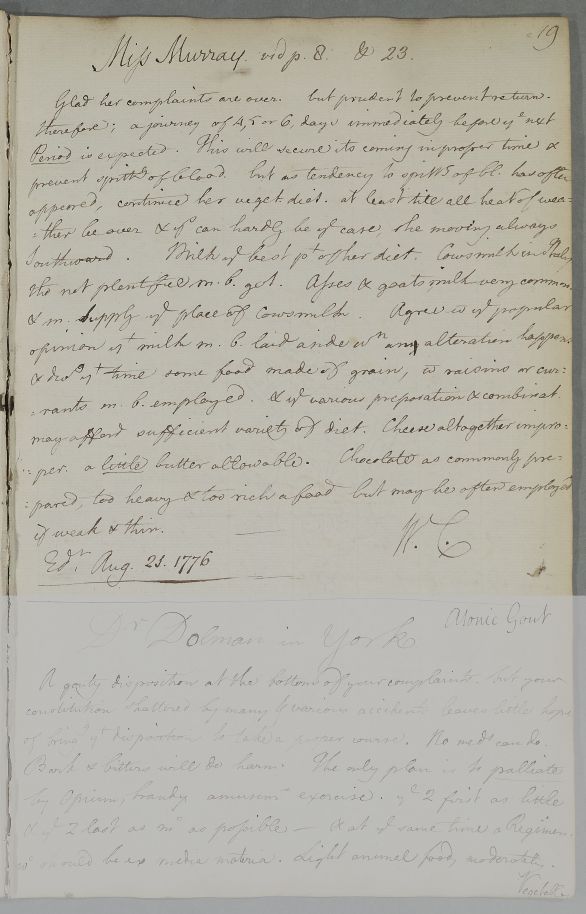 19
Miss Murray. vid p. 8. & 23.
Glad her complaints are over. but prudent to prevent return.
therefore; a journey of 4, 5 or 6, days immediately before ye next
Period is expected. This will secure its coming in proper time &
prevent spittg of blood. but as tendency to spittg of bl. has often
appeared, continue her veget diet. at least till all heat of wea-
-ther be over & ys can hardly be ye case, she moving always
southward. Milk ye best pt of her diet. Cows milk in Italy
tho not plentiful m. b. got. Asses & goats milk very common
& m. supply ye place of Cows milk. Agree w ye popular
opinion yt milk m. b. laid aside wn any alteration happens
& yt time some food made of grain, w raisins or cur-
-rants m. b. employed. & ye various preparation & combinat.
may afford sufficient variety of diet. Cheese altogether impro-
-per. a little butter allowable. Chocolate as commonly pre-
-pared, too heavy & too rich a food but may be often employed
if weak & thin.
W. C.
Edr. Aug. 21. 1776
Dr Dolman in York
Atonic Gout
A gouty disposition at the bottom of your complaints. but your
constitution shattered by many & various accidents leaves little hope
of bringg yt disposition to take a proper course. No meds can do.
Bark & bitters will do harm. The only plan is to palliate
by Opium, brandy amusemt exercise. ye 2 first as little
& ye 2 last as m as possible — & at ye same time a Regimen.
should be ex media materia. Light animal food, moderately.